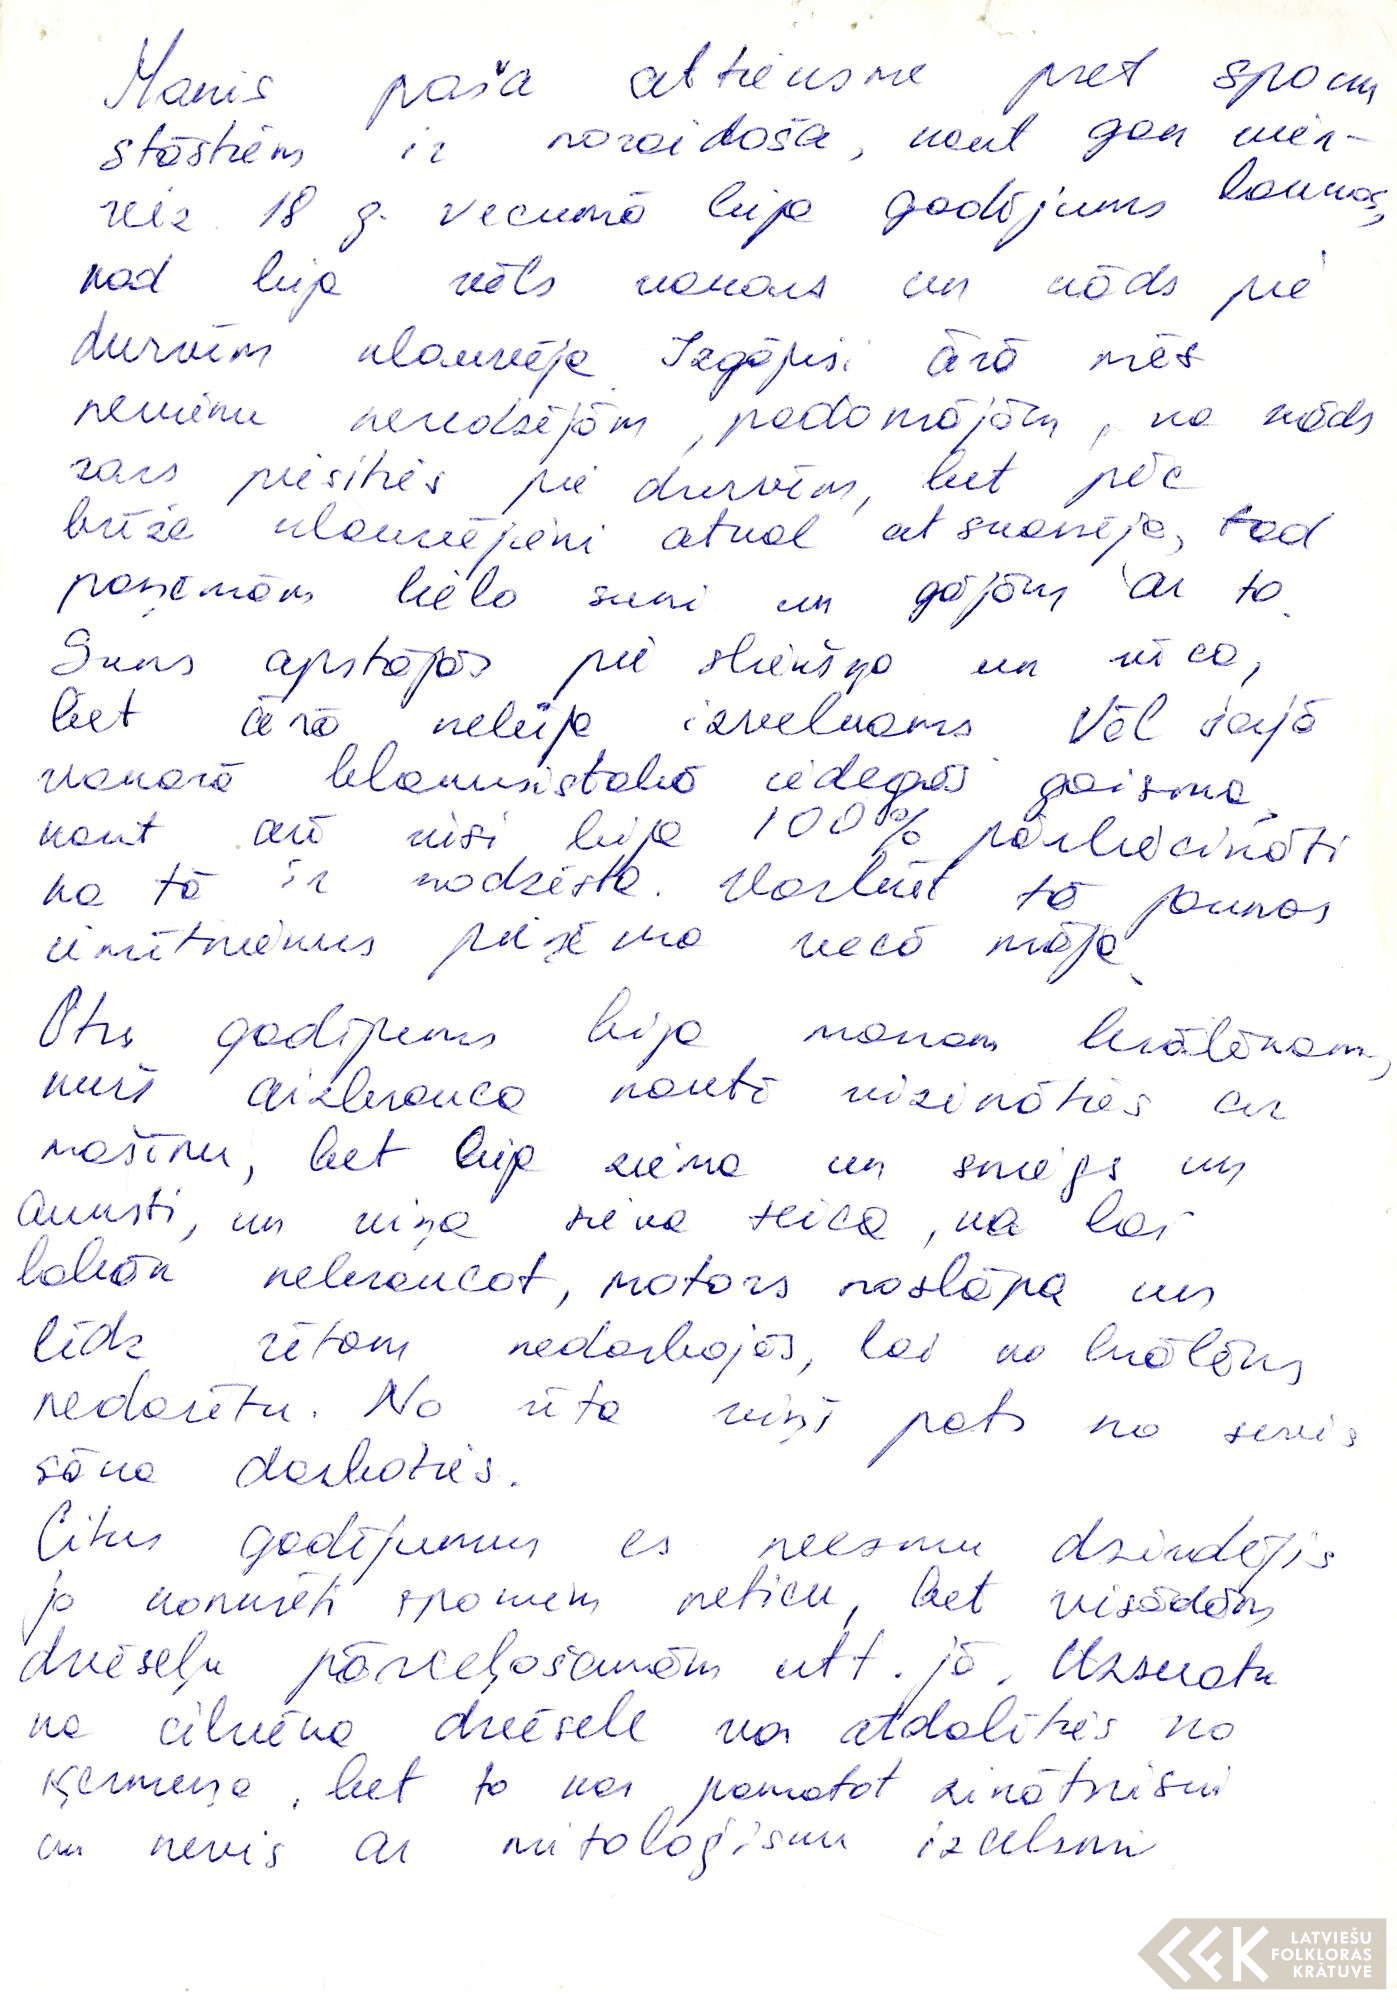 Manis paša attieksme pret spoku
stāstiem ir noraidoša, kaut gan vien-
reiz 18 g. vecumā bija gadījums laukos,
kad bija vēls vakars un kāds pie
durvīm klauvēja. Izgājuši ārā mēs
nevienu neredzējām, padomājām, ka kāds
zars piesities pie durvīm, bet pēc
brīža klauvējieni atkal atskanēja, tad
paņēmām lielo suni un gājām ar to.
Suns apstājās pie sliekšņa un rūca,
bet ārā nebija izvelkams. Vēl šajā
vakarā blakusistabā iedegās gaisma,
kaut arī visi bija 100% pārliecināti
ka tā ir nodzēsta. Varbūt tā jaunos
iemītniekus pieņēma vecā māja.
Otrs gadījums bija manam brālēnam,
kurš aizbrauca naktī vizināties ar
mašīnu, bet bija ziema un sniegs un
auksti, un viņa sieva teica, ka lai
labāk nebraucot, motors noslāpa un
līdz rītam nedarbojās, lai ko brālēns
nedarītu. No rīta viņš pats no sevis
sāka darboties.
Citus gadījumus es neesmu dzirdējis
jo konkrēti spokiem neticu, bet visādām
dvēseļu pārceļošanām utt. jā. Uzskatu
ka cilvēka dvēsele var atdalīties no
ķermeņa, bet to var pamatot zinātniski
un nevis ar mitoloģisku izcelsmi
LATVIEŠU
FOLKLORAS
KRĀTUVE